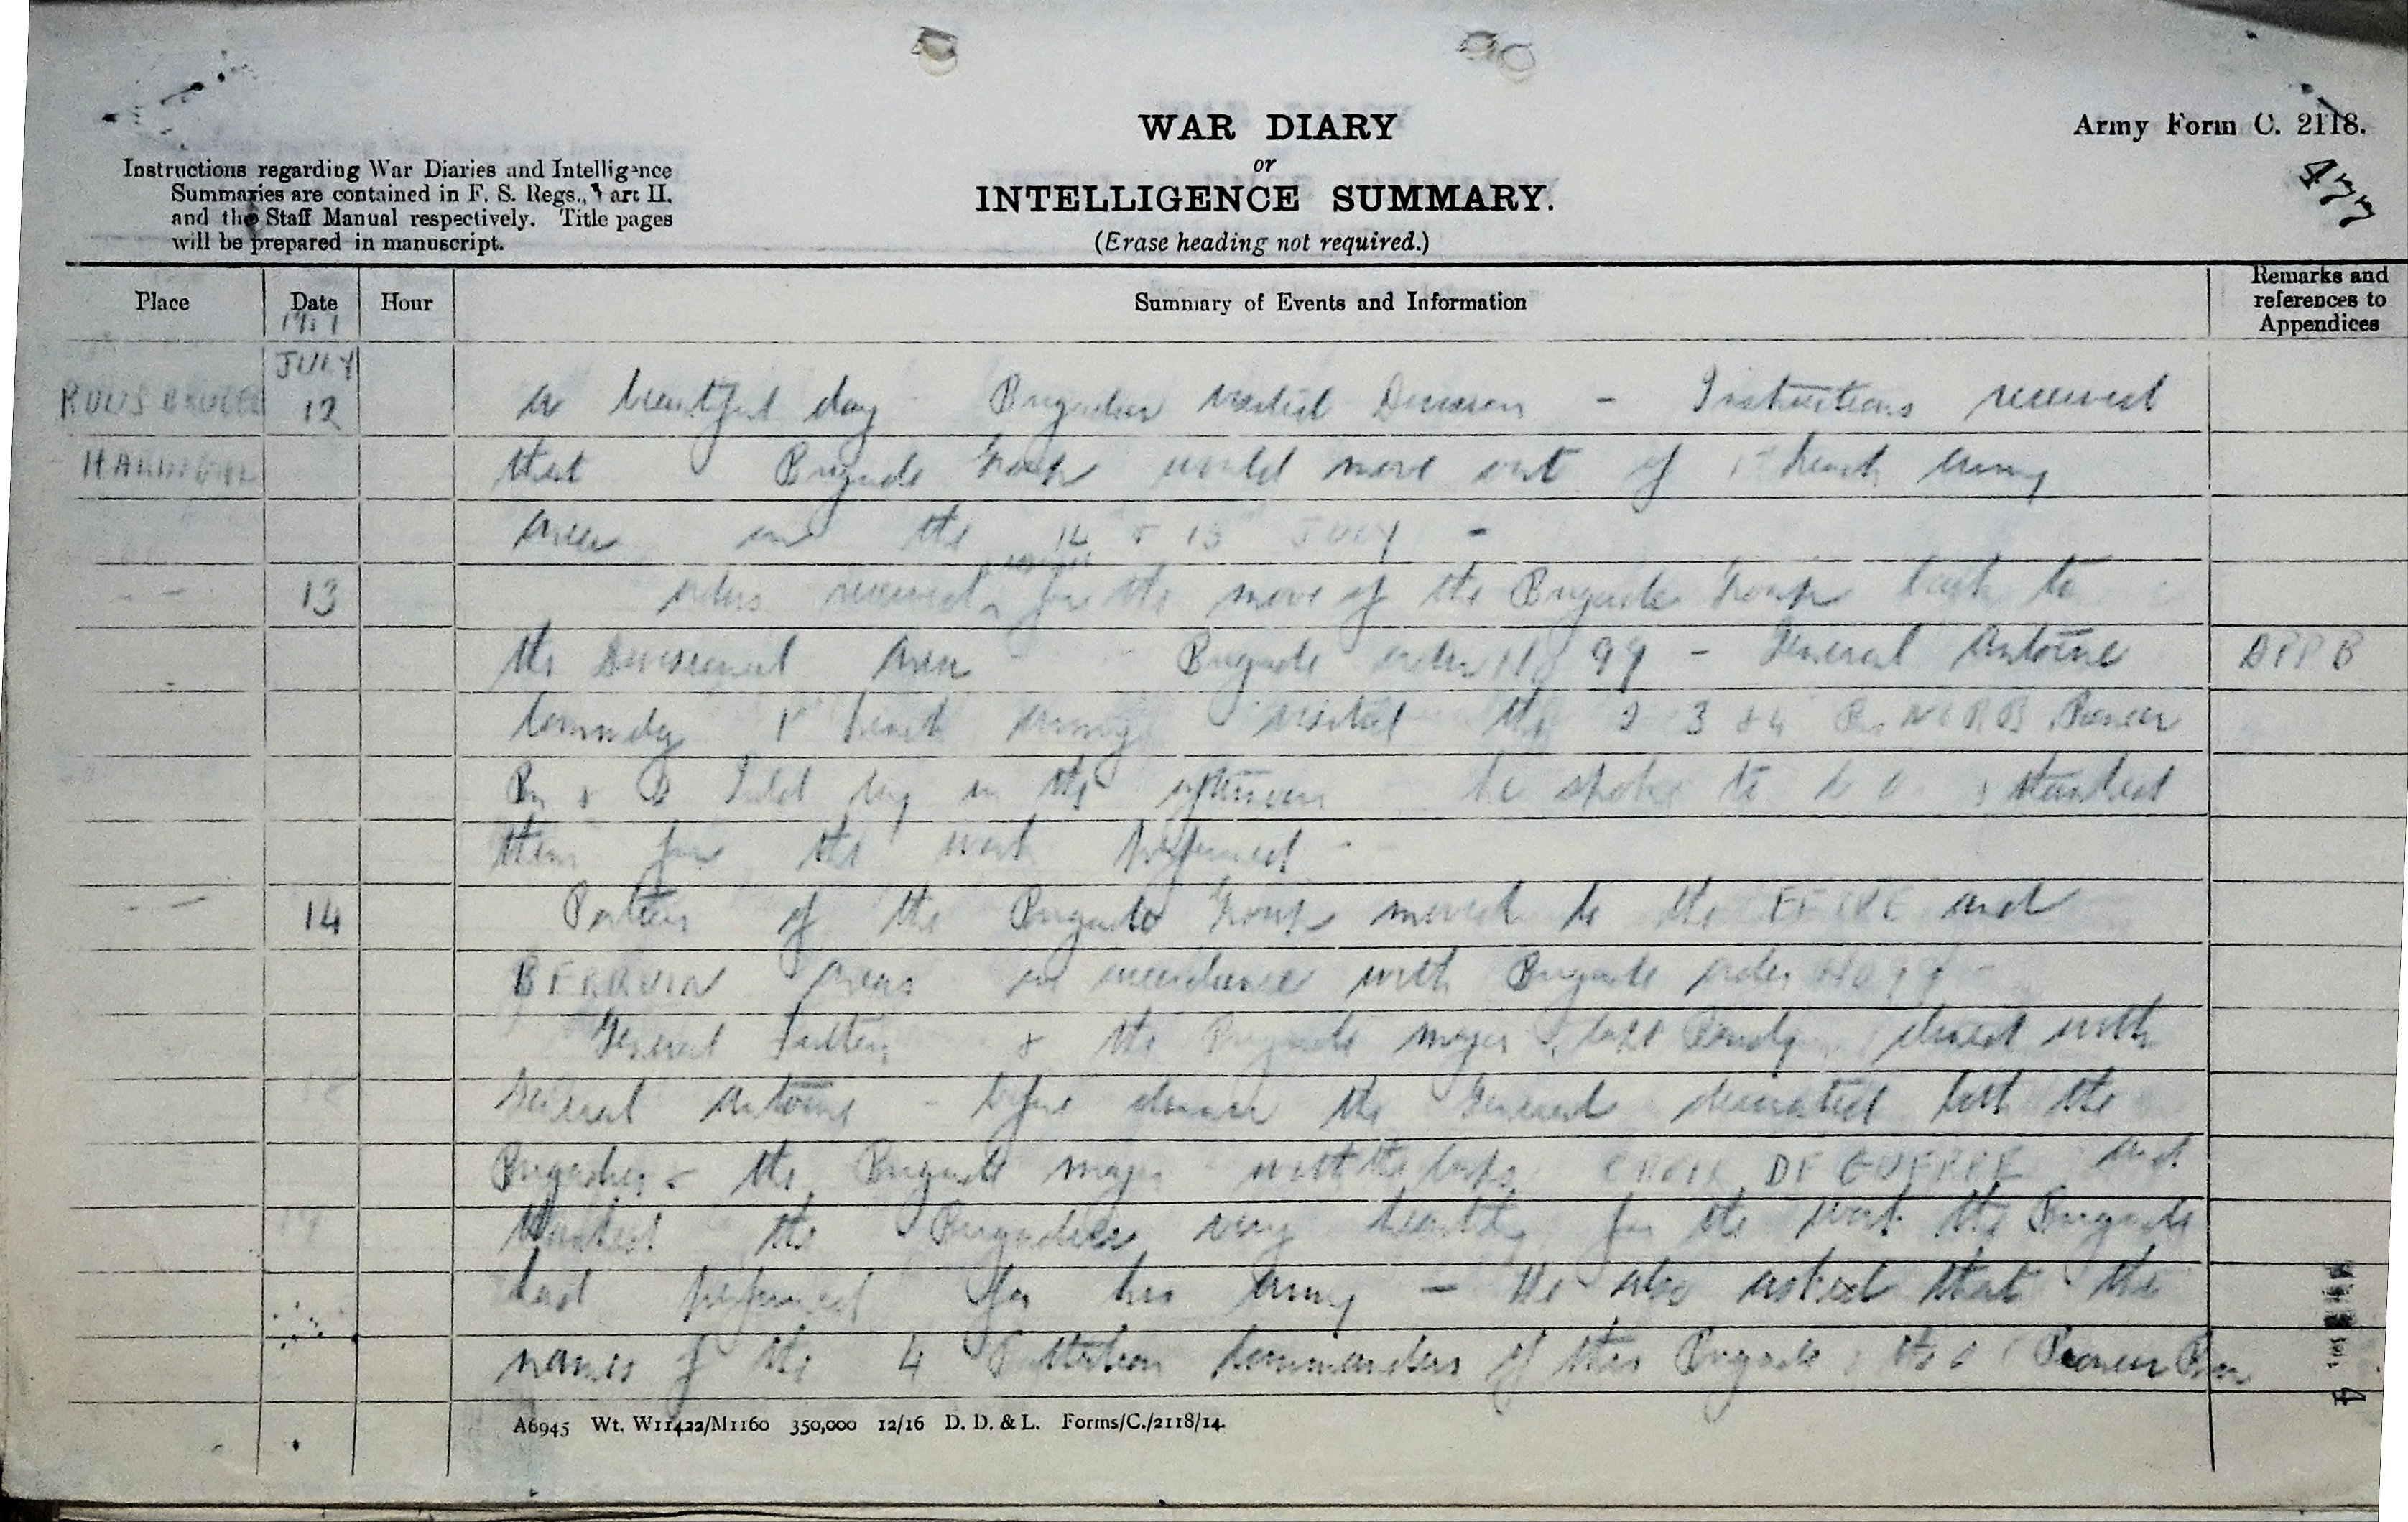 WAR DIARY
or
INTELLIGENCE SUMMARY.
(Erase heading not required.)
Army Form C. 2118.
Instructions regarding War Diaries and Intelligence
Summaries are contained in F. S. Regs., Part II.
and the Staff Manual respectively. Title pages
will be prepared in manuscript.
Place Date Hour Summary of Events and Information Remarks and references to Appendices
1917
JULY
12 A beautiful day Brigadier visited Division - Instructions received
that Brigade Group would move out of French Army
area on the 14 & 15 JULY -
13 orders received for the move of the Brigade Group back to
the Divisional area - Brigade order No 99 - General Antoine APP B
Commdg 1st French Army visited the 2 3 & 4 Bn NZRB Pioneer
Bn & Field Coy in the afternoon he spoke to & thanked
them for the work performed -
14 Portion of the Brigade Group moved to the and
areas in accordance with Brigade order No 99 -
General & the Brigade Major, Capt dined with
General Antoine - before dinner the General decorated both the
Brigadier & the Brigade Major with the CROIX DE GUERRE and
thanked the Brigadier very heartily for the work the Brigade
had performed for his army - He also asked that the
names of the 4 Battalion Commanders of this Brigade, the Pioneer Bn
A6945 Wt. W11422/M1160 350,000 12/16 D. D. & L. Forms/C./2118/14.